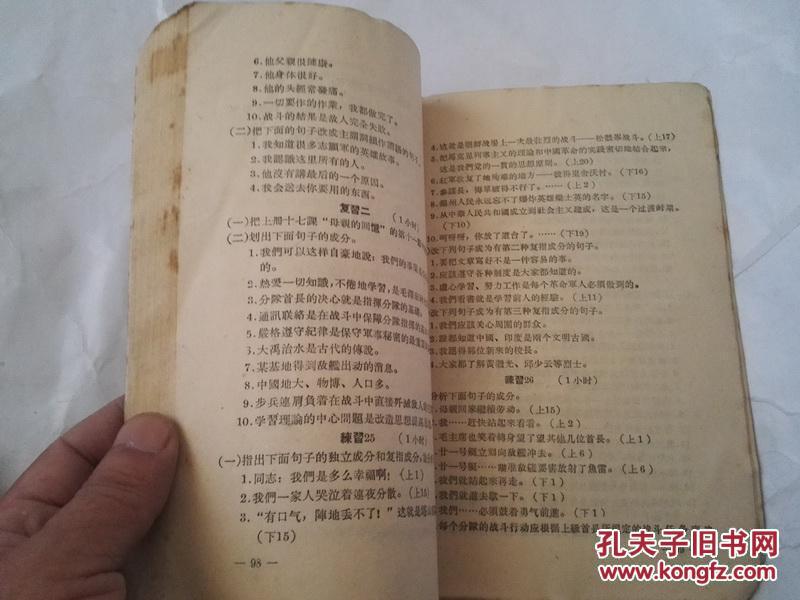 6.他父親很健康。
7.他身体很好。
8.他的头經常發痛。
9.一切要作的作業，我都做完了。
10.战斗的結果是敌人完全失敗。
(二)把下面的句子改成主謂詞組作謂語的句子。
1.我知道很多志願軍的英雄故事。
2.我認識这里所有的人。
3.他沒有講最后的一个原因。
4.我会送去你要用的东西。
复習二 (1小时)
(一)把上册十七課“母親的回憶”的第十一
(二)划出下面句子的成分。
1.我們可以这样自豪地說：我們的事業
的。
2.熱愛一切知識，不倦地学習，是毛澤
3.分隊首長的决心就是指揮分隊的基礎。
4.通訊联絡是在战斗中保障分隊指揮的
5.嚴格遵守紀律是保守軍事秘密的最重要
6.大禹治水是古代的傳說。
7.某基地得到敌艦出动的消息。
8.中國地大、物博、人口多。
9.步兵連肩負着在战斗中直接歼滅敌人的
10.学習理論的中心問題是改造思想
練習25 (1小时)
(一)指出下面句子的独立成分和复指成分，
1.同志：我們是多么幸福啊！(上1)
2.我們一家人哭泣着連夜分散。(上15)
3.“有口气，陣地丢不了！”这就是
(下15)
— 98 —
4.这就是朝鮮战場上一次最壯烈的战斗——松骨峯战斗。(上17)
5.把馬克思列寧主义的理論和中國革命的实践密切地結合起來，
这是我們党的一貫的思想原則。(上20)
6.紅軍收复了她殉难的地方——彼得里舍沃村。(下16)
7.参謀長，傳單破得不行了。……(上2)
8.温州人民永远忘不了爆炸英雄 的名字。(下15)
9.从中華人民共和國成立到社会主义建成，这是一个过渡时期。
(下10)
10.呵呀呀，你放了道台了。……(下19)
改下列句子成为有第二种复指成分的句子。
1.要把文章寫好不是一件容易的事。
2.应該遵守各种制度是大家都知道的。
3.虚心学習、努力工作是每个革命軍人必須做到的。
4.我們看書就是学習前人的經驗。(上11)
改下列句子成为有第三种复指成分的句子。
1.我們应該关心周圍的群众。
2.誰都知道中國、印度是兩个文明古國。
3.我認得那位新來的校長。
4.大家都了解黃繼光、邱少云等烈士。
練習26 (1小时)
分析下面句子的成分。
1.母親回家繼續劳动。(上15)
2.我……赶快站起來看看。(上2)
3.毛主席也笑着轉身望了望其他几位首長。(上1)
4.廿一号艇立刻向敌艦冲去。(上6)
5.廿一号艇……瞄准敌艦要害放射了魚雷。(上6)
我們就站起來再走。(下1)
我們就進去歇一下。(下1)
我們……必須鼓着勇气前進。(下1)
每个分隊的战斗行动应根据上級首長所固定的战斗任务
孔夫子旧书网
www.kongfz.com